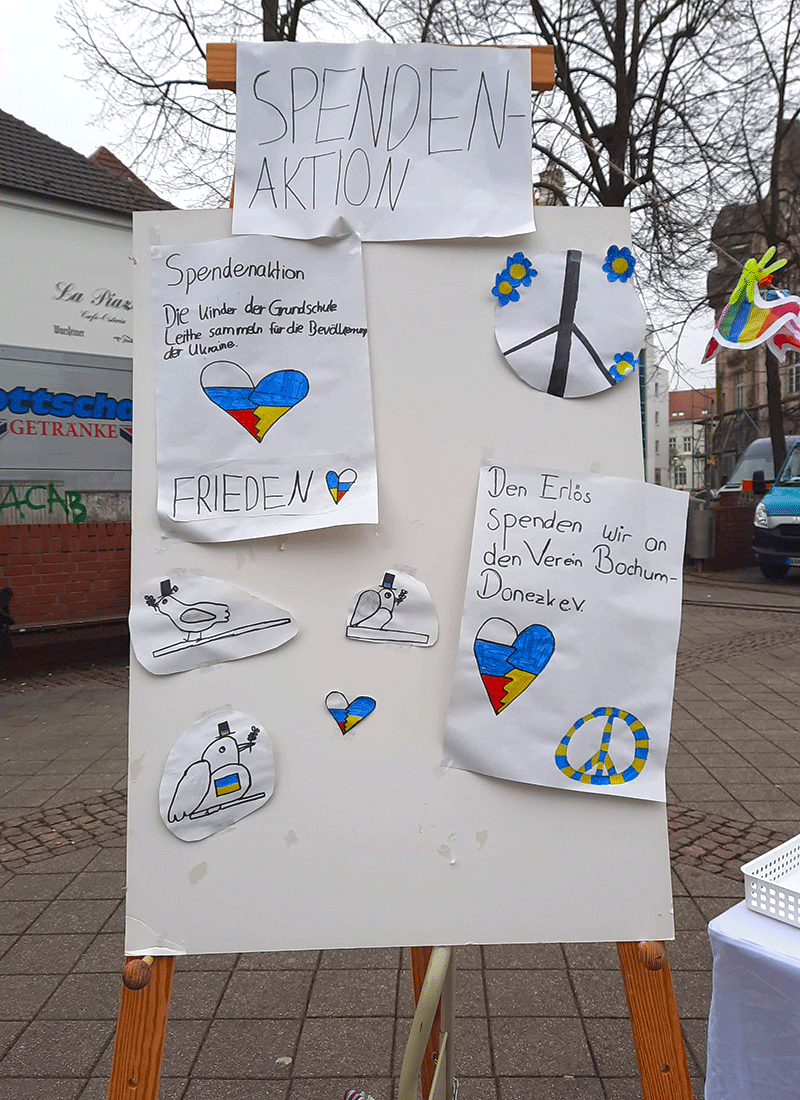 SPENDEN-
AKTION
Spendenaktion
Die Kinder der Grundschule
Leithe sammeln für die Bevölkerung
der Ukraine.
FRIEDEN
Den Erlös
spenden wir an
den Verein Bochum-
Donezk e.V.
La Piaz
Café-Osteria
Warsteiner
ottscho
GETRÄNKE
ACAB